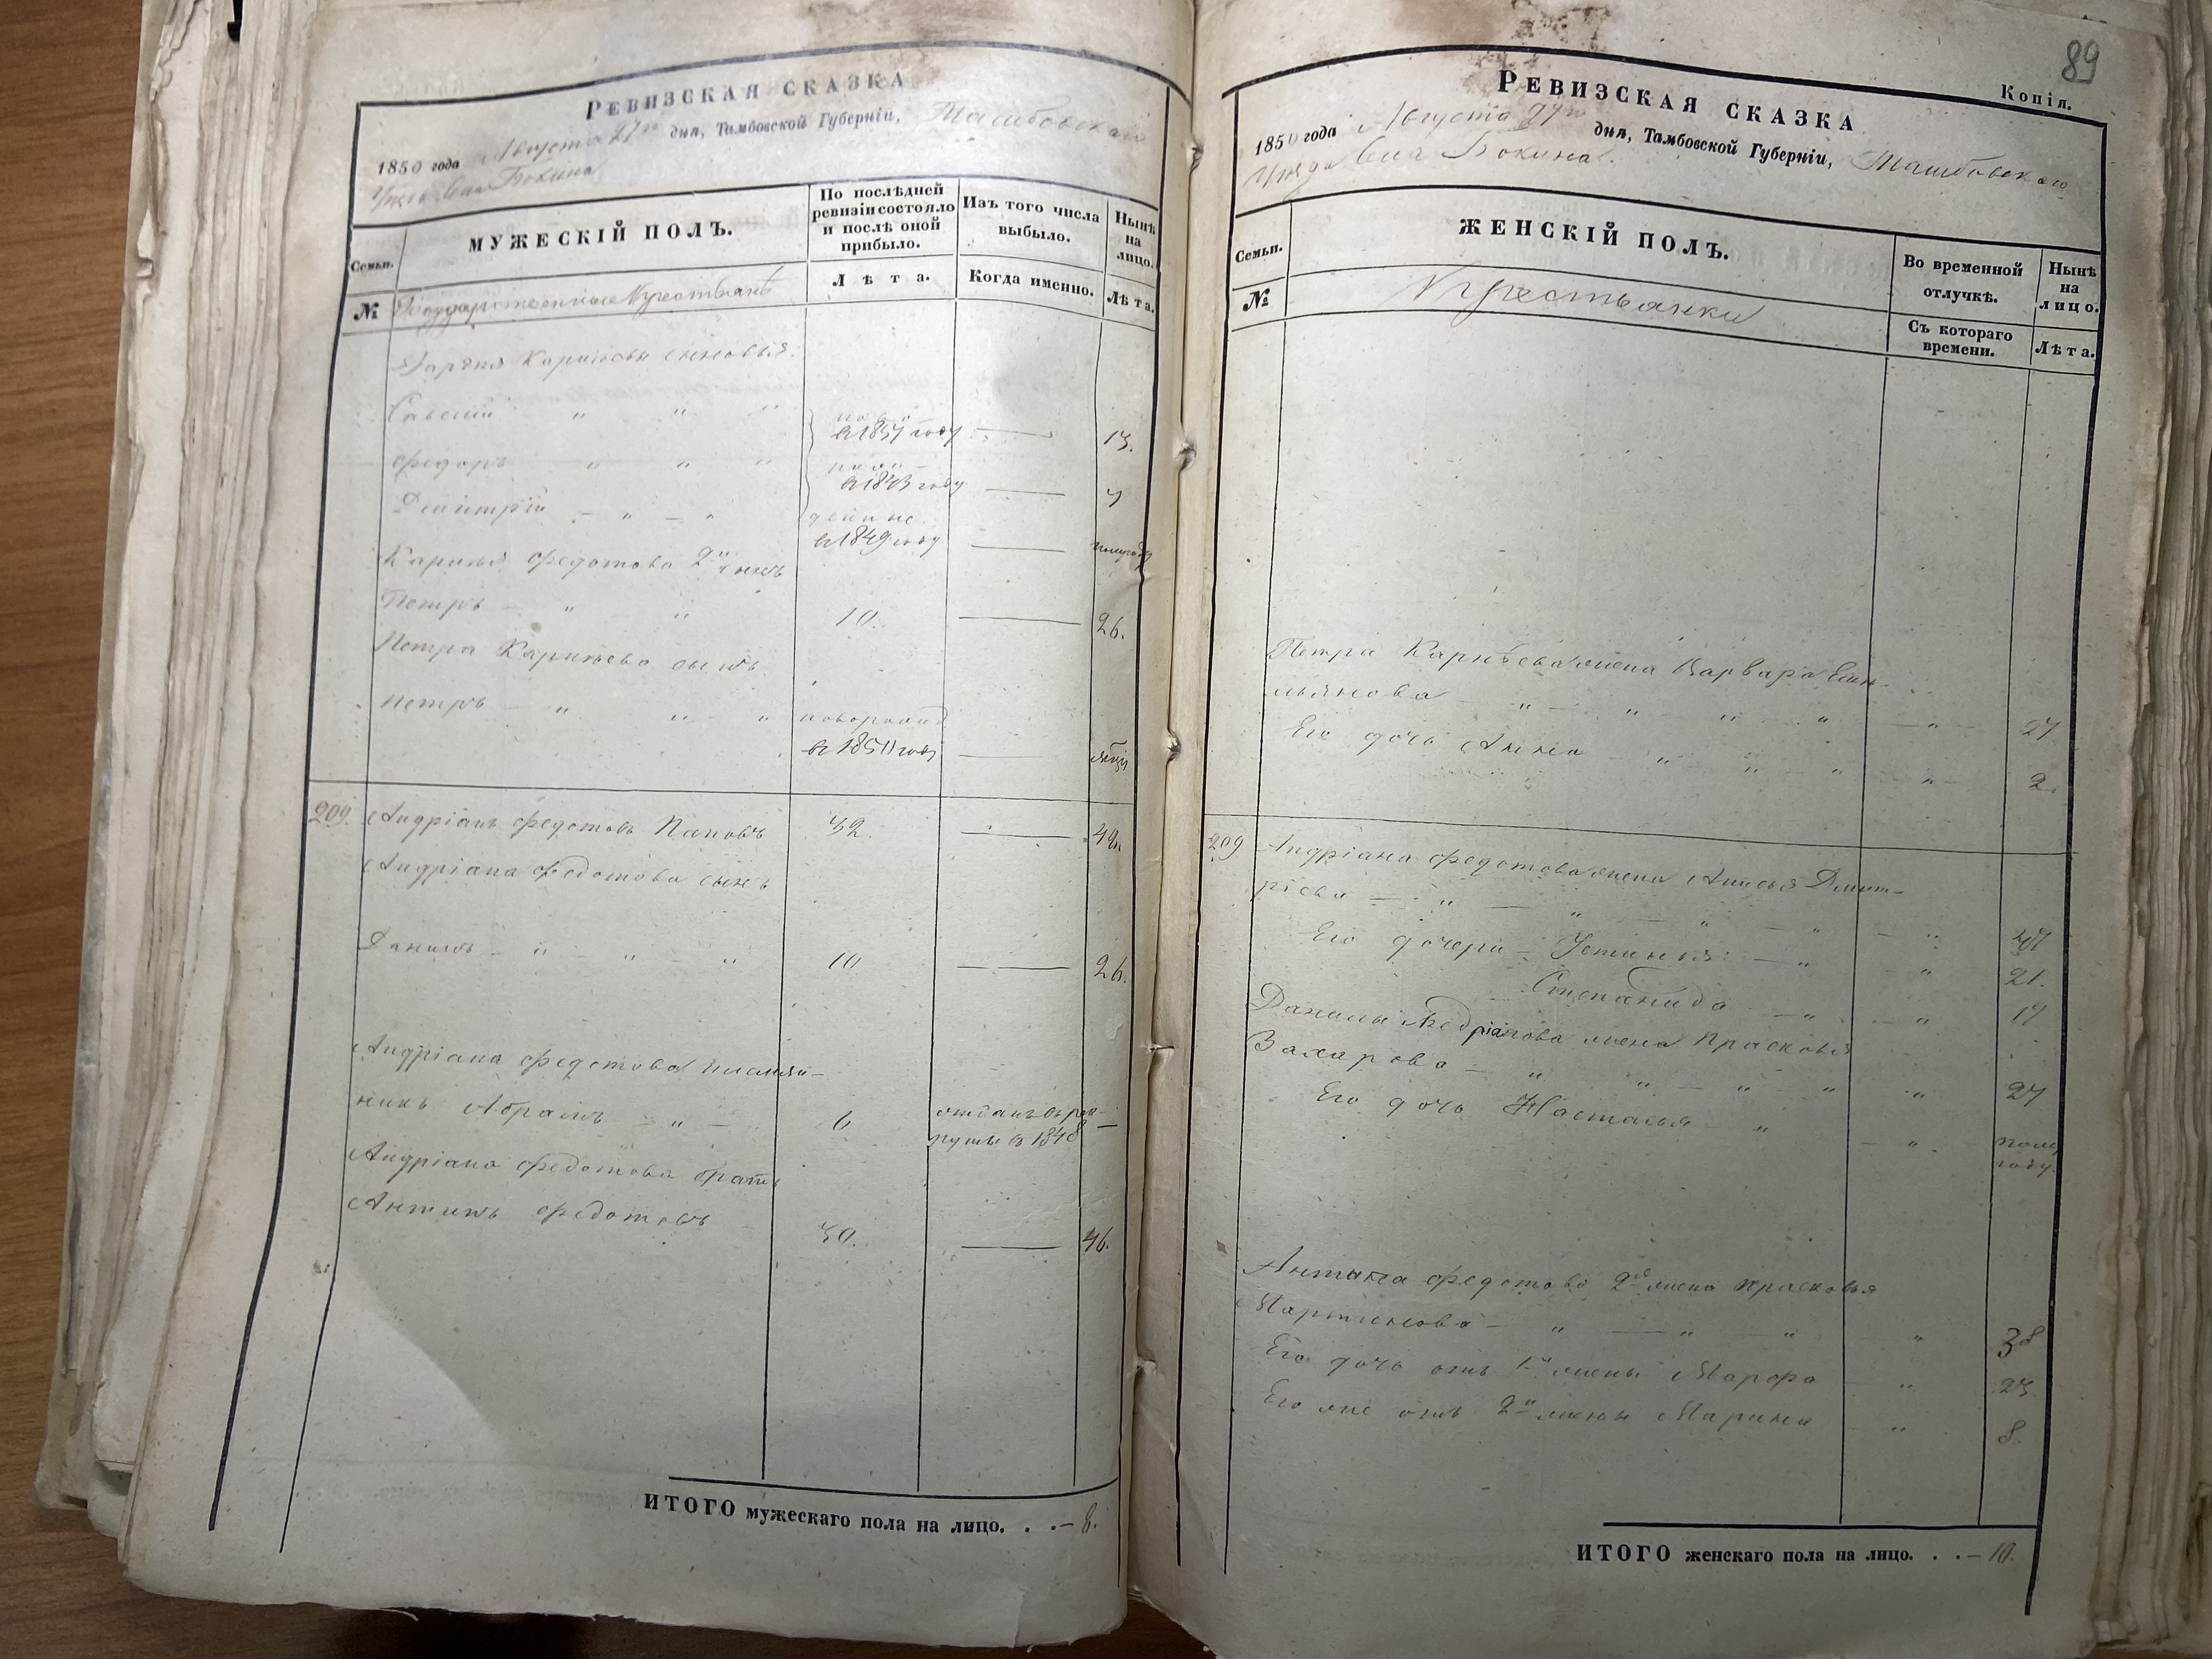 РЕВИЗСКАЯ СКАЗКА
1850 года Августа 27го дня, Тамбовской Губерніи, Тамбовскаго
Уѣзда Села Бокина
Семьи.
МУЖЕСКІЙ ПОЛЪ.
По послѣдней ревизіи состояло и послѣ оной прибыло.
Изъ того числа выбыло.
Нынѣ на лицо.
№
Государственные Крестьяне
Лѣта.
Когда именно.
Лѣта.
Карпѣевы сыновья:
" " "
въ 1837 году — 13.
Федоръ " " "
въ 1843 году — 7
Дмитрій — " — "
въ 1849 году — полугоду
Карпѣя Федотова 2й сынъ
Петръ — " " 10. — 26.
Петра Карпѣева сынъ
Петръ — " " — " новорожд
въ 1850 году —
209. Андріанъ Федотовъ Поповъ 32. — 49.
Андріана Федотова сынъ
Данилъ — " — " — " 10 — 26.
Андріана Федотова племян-
никъ Абрамъ — " — 6 отданъ въ рек-
руты в 1848 —
Андріана Федотова братъ
Антипъ Федотовъ 30. — 46.
ИТОГО мужескаго пола на лицо. . . — 8.
89
Копія.
РЕВИЗСКАЯ СКАЗКА
1850 года Августа 27го дня, Тамбовской Губерніи, Тамбовскаго
Уѣзда Села Бокина.
Семьи.
ЖЕНСКІЙ ПОЛЪ.
Во временной отлучкѣ.
Нынѣ на лицо.
№
Крестьянки
Съ котораго времени.
Лѣта.
Петра Карпѣева жена Варвара Емѣ-
льянова — " — " — " — " — " 27
Его дочь Анна — " — " — " — " 2.
209 Андріана Федотова жена Анисья Дмит-
ріева — " — " — " — " — " 47
Его дочери — Устинья: — " — " 21.
Степанида — " — " 17
Данилы Андріанова жена Прасковья
Захарова — " " — " — " " 27
Его дочь Настасья — " — " полу
году.
Антипа Федотова 2я жена Прасковья
Мартинова — " — " — " " 38
Его дочь отъ 1й жены Марфа " 23
Его же отъ 2й жены Марина " 8.
ИТОГО женскаго пола на лицо. . . — 10.